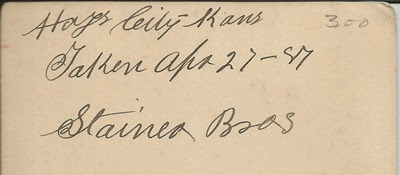 Hays City Kans 300
Taken Apr 27-87
Stainer Bros